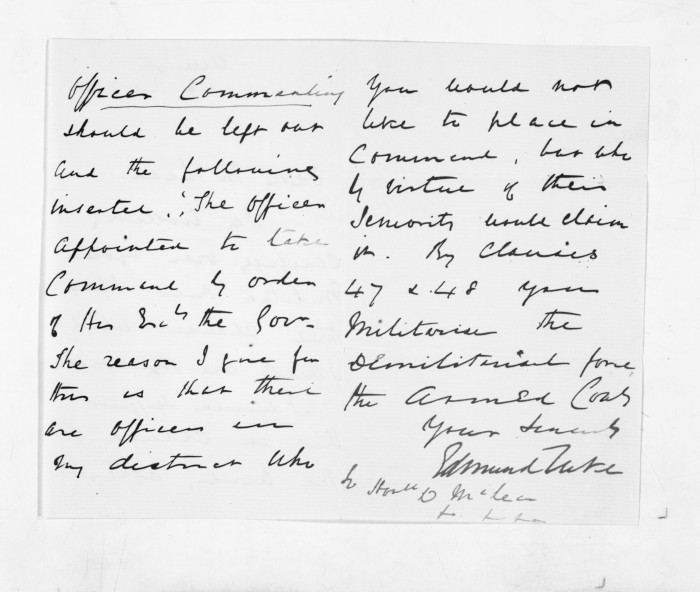 Officer Commanding
should be left out
and the following
inserted, "The officer
appointed to take
Command by order
of His Excy the Govr
The reason I give for
this is that there
are officers in
my district who
You would not
like to place in
Command, but who
by virtue of their
Seniority would claim
it. By Clauses
47 & 48 you
Militarise the
Demilitarised force
the Armed Const
Yours sincerely
Edmund Tuke
Honble D McLean